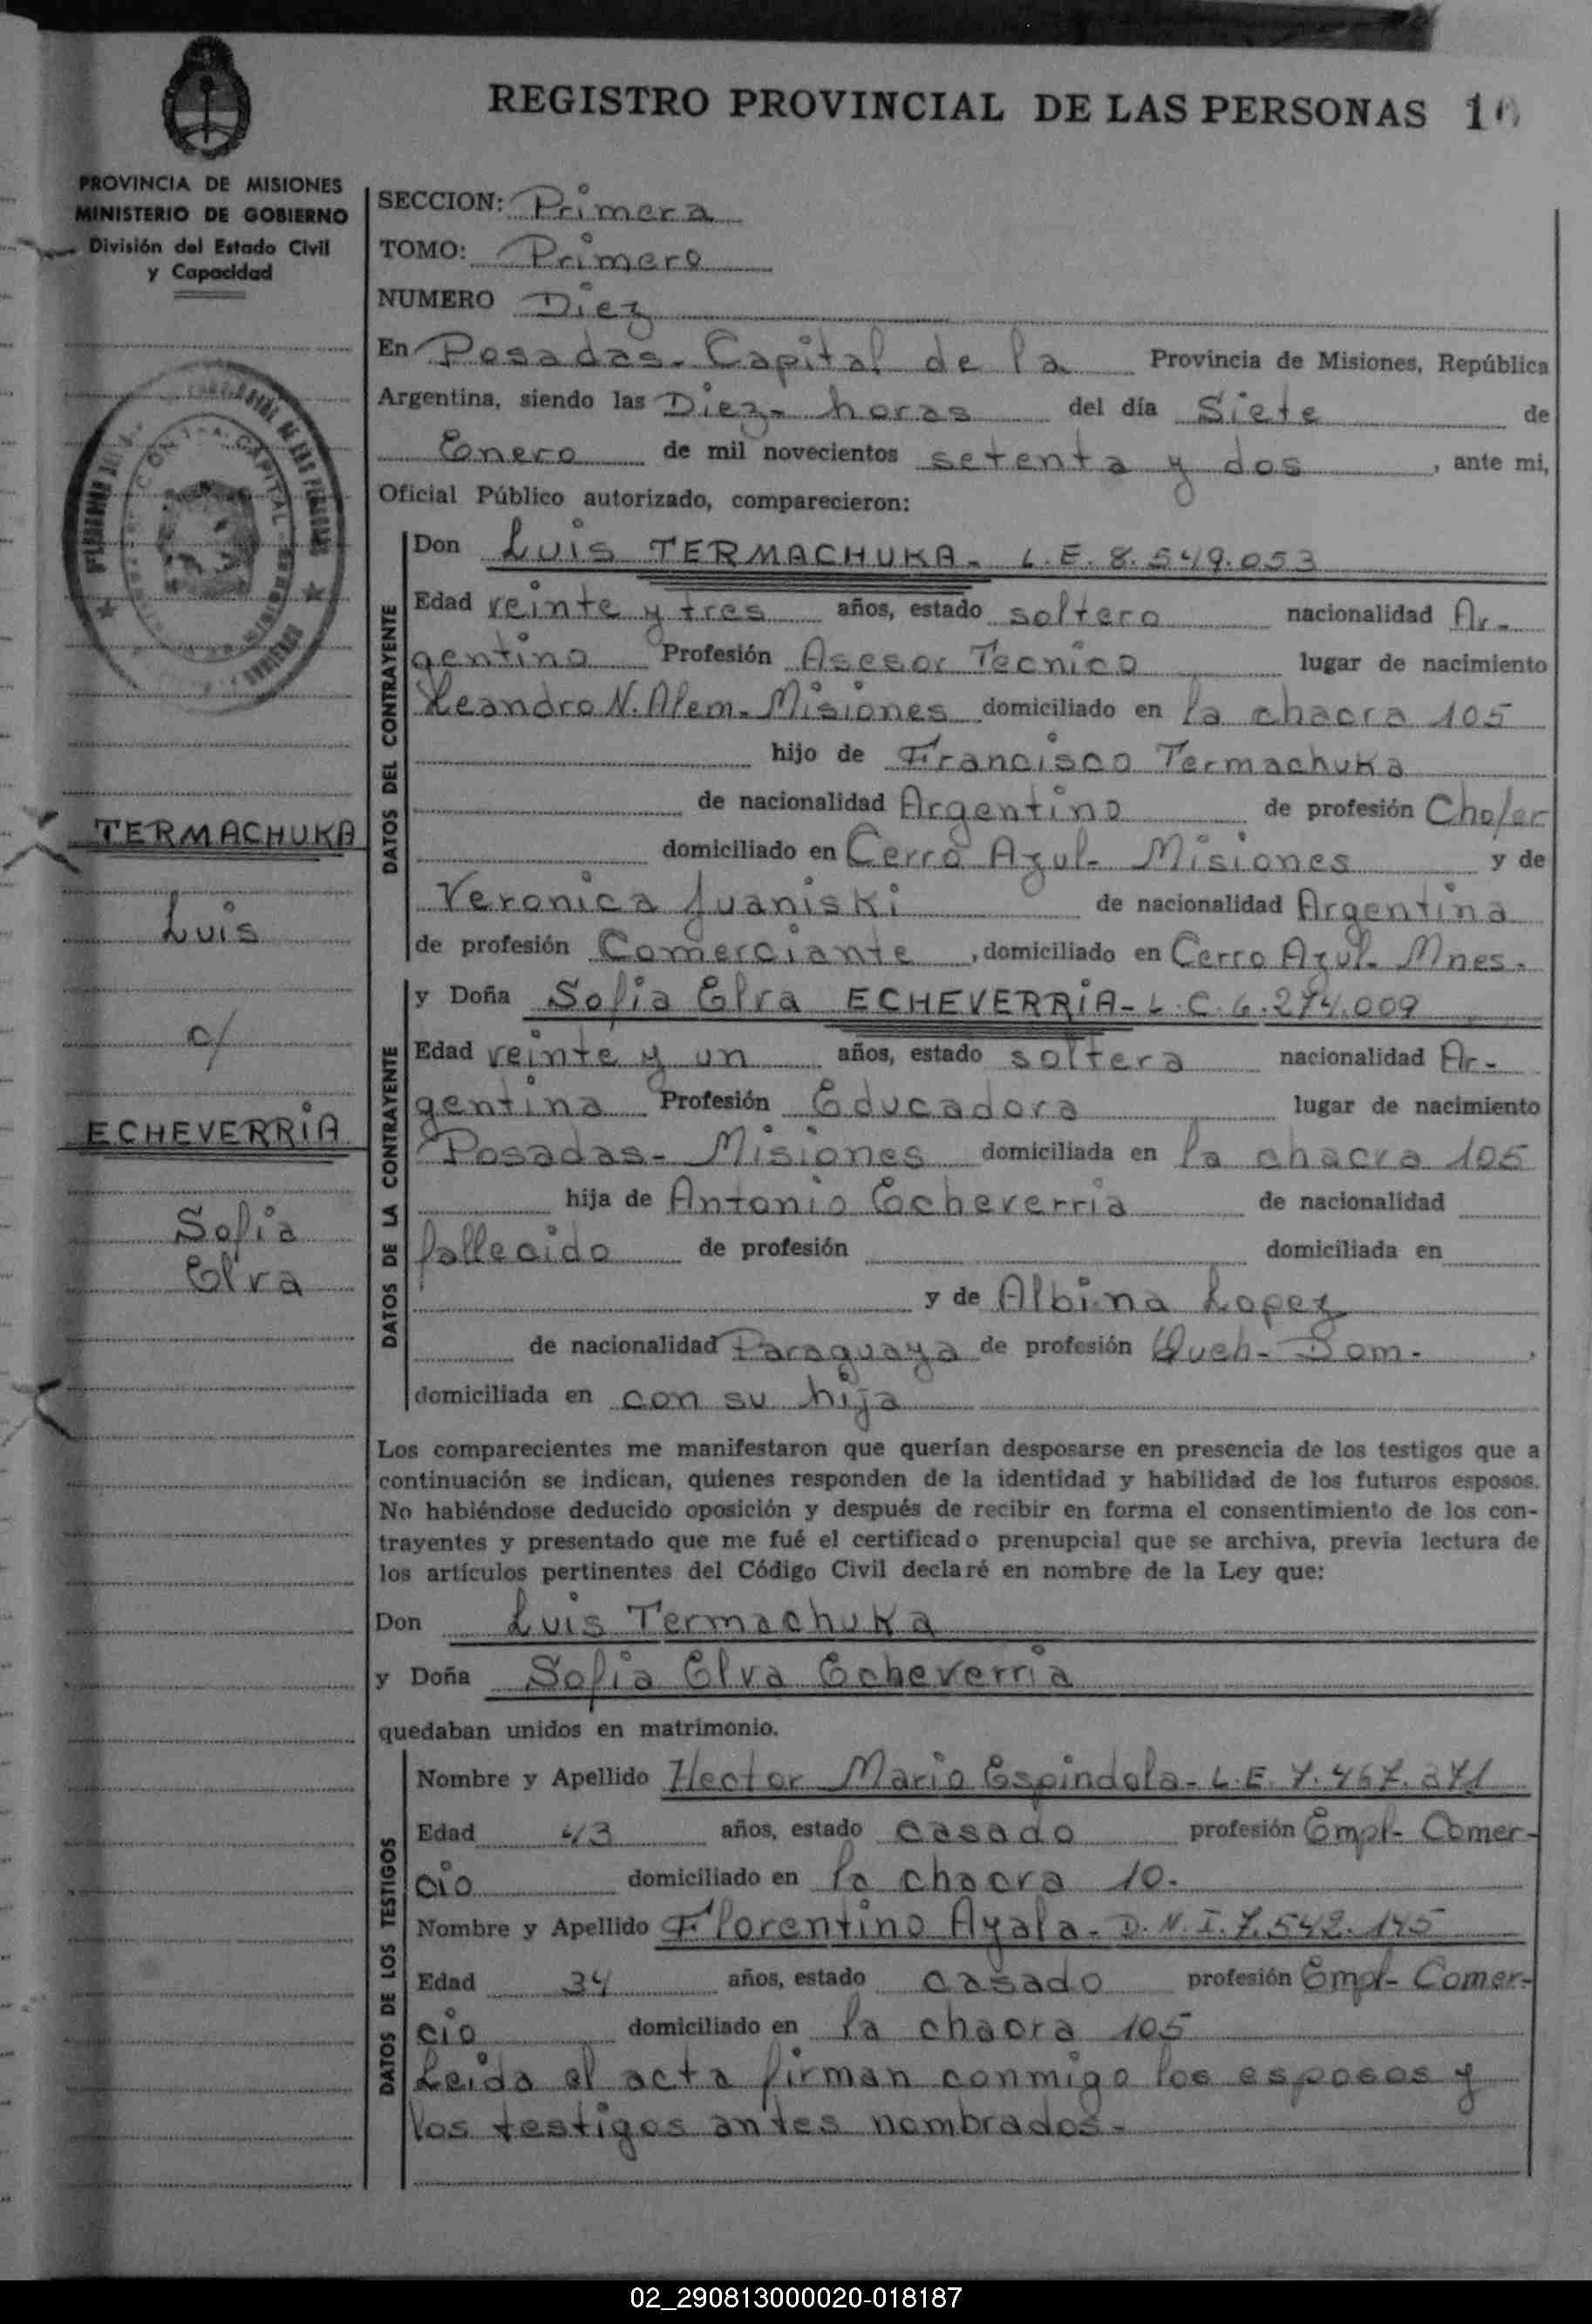 REGISTRO PROVINCIAL DE LAS PERSONAS 10
PROVINCIA DE MISIONES
MINISTERIO DE GOBIERNO
División del Estado Civil
y Capacidad
SECCION: Primera
TOMO: Primero
NUMERO Diez
En Posadas- Capital de la Provincia de Misiones, República
Argentina, siendo las Diez- horas del día Siete de
Enero de mil novecientos setenta y dos, ante mi,
Oficial Público autorizado, comparecieron:
TERMACHUKA
Luis
c/
ECHEVERRÍA
Sofia
Elva
DATOS DEL CONTRAYENTE
Don Luis TERMACHUKA- L.E. 8.549.053
Edad veinte y tres años, estado soltero nacionalidad Ar-
gentino Profesión Asesor Tecnico lugar de nacimiento
Leandro N. Alem- Misiones domiciliado en la chacra 105
hijo de Francisco Termachuka
de nacionalidad Argentino de profesión Chofer
domiciliado en Cerro Azul- Misiones y de
Veronica Juaniski de nacionalidad Argentina
de profesión Comerciante, domiciliado en Cerro Azul- Mnes-
DATOS DE LA CONTRAYENTE
y Doña Sofia Elva ECHEVERRÍA- L.C. 6.274.009
Edad veinte y un años, estado soltera nacionalidad Ar-
gentina Profesión Educadora lugar de nacimiento
Posadas- Misiones domiciliada en la chacra 105
hija de Antonio Echeverria de nacionalidad
fallecido de profesión domiciliada en
y de Albina Lopez
de nacionalidad Paraguaya de profesión Queh- Dom-,
domiciliada en con su hija
Los comparecientes me manifestaron que querían desposarse en presencia de los testigos que a
continuación se indican, quienes responden de la identidad y habilidad de los futuros esposos.
No habiéndose deducido oposición y después de recibir en forma el consentimiento de los con-
trayentes y presentado que me fué el certificado prenupcial que se archiva, previa lectura de
los artículos pertinentes del Código Civil declaré en nombre de la Ley que:
Don Luis Termachuka
y Doña Sofia Elva Echeverria
quedaban unidos en matrimonio.
DATOS DE LOS TESTIGOS
Nombre y Apellido Hector Mario Espindola- L.E. 7.467.371
Edad 43 años, estado casado profesión Empl- Comer-
cio domiciliado en la chacra 10-
Nombre y Apellido Florentino Ayala- D.N.I. 7.542.145
Edad 34 años, estado casado profesión Empl- Comer-
cio domiciliado en la chacra 105
Leida el acta firman conmigo los esposos y
los testigos antes nombrados-
02_290813000020-018187